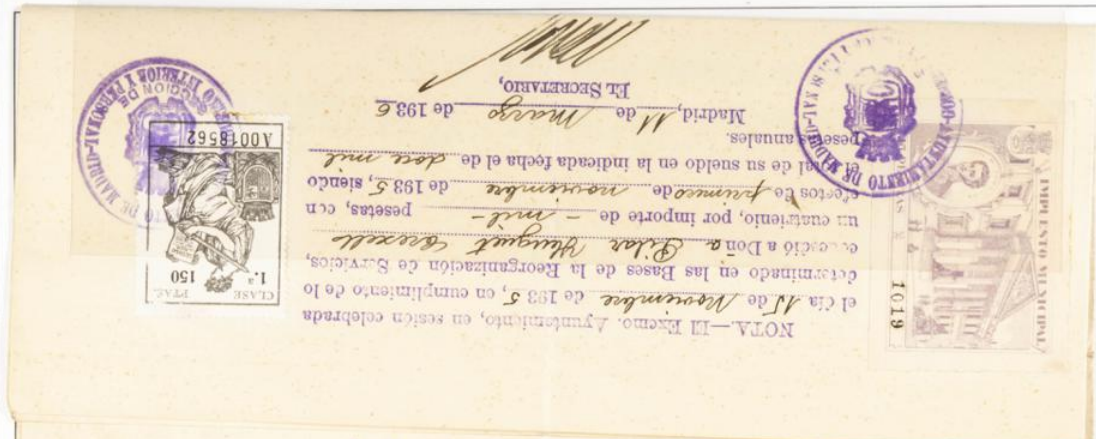 NOTA.—El Excmo. Ayuntamiento, en sesión celebrada
el día 15 de Noviembre de 1935, en cumplimiento de lo
determinado en las Bases de la Reorganización de Servicios,
concedió a Doña Pilar Huguet Crexells
un cuatrienio, por importe de - mil - pesetas, con
efectos de primero de noviembre de 1935, siendo
el total de su sueldo en la indicada fecha el de doce mil
pesetas anuales.
Madrid, 11 de Marzo de 1936
EL SECRETARIO,
CLASE 1.ª
PTAS. 150
A0018562
IMPUESTO MUNICIPAL
1019
AYUNTAMIENTO DE MADRID
SECCION DE
INTERIOR Y PERSONAL